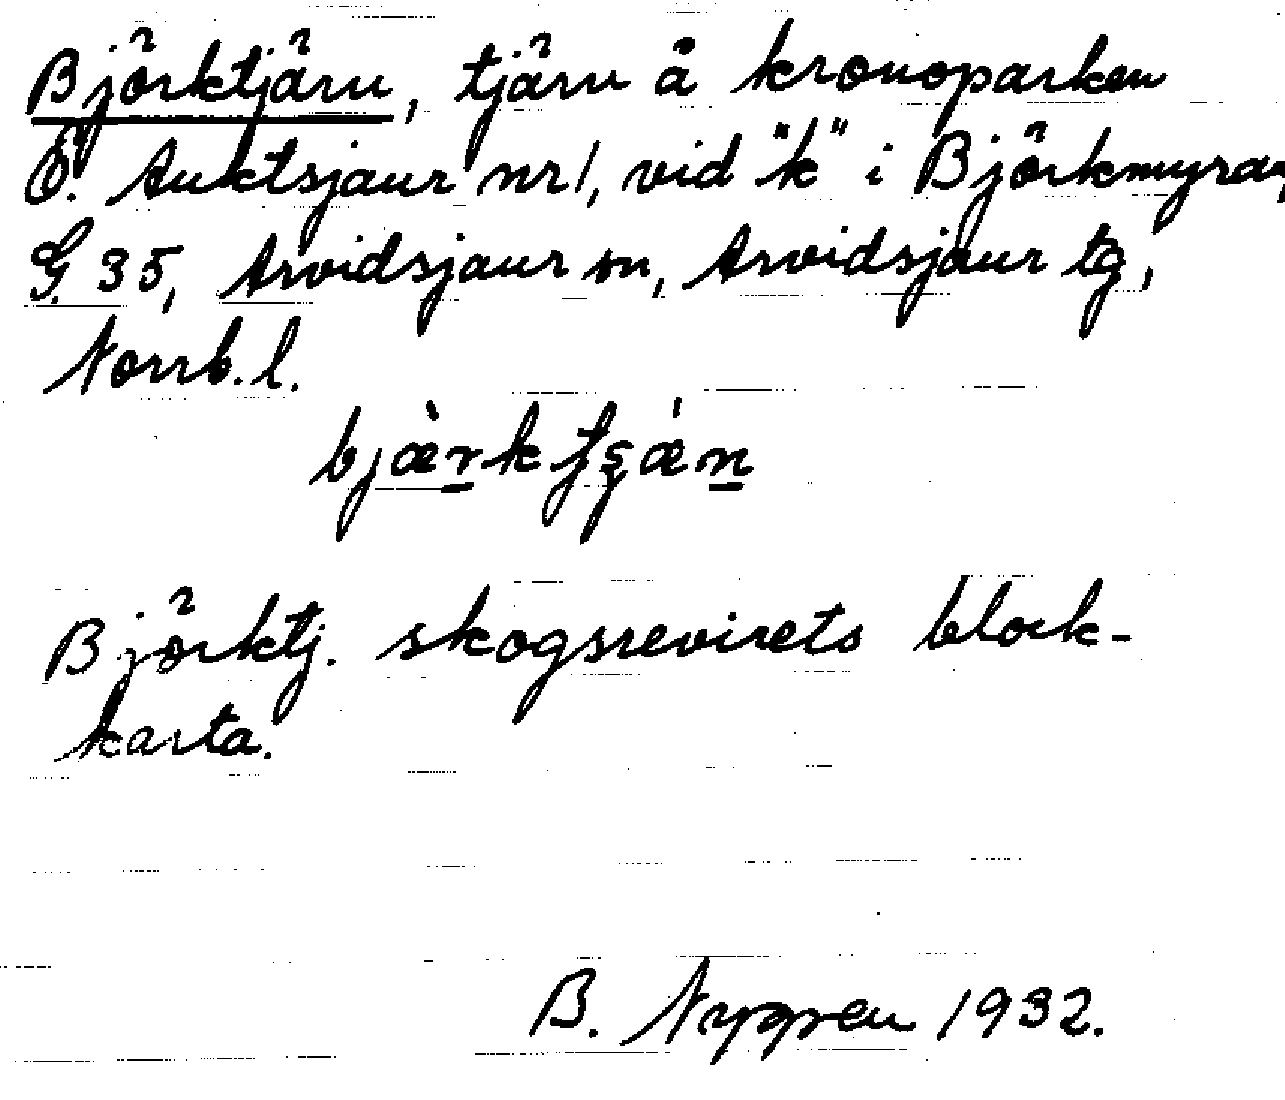 Björktjärn, tjärn å kronoparken
Ö. Auktsjaur nr 1, vid "k" i Björkmyran,
G. 35, Arvidsjaur sn, Arvidsjaur tg,
Norrb. l.
Björktj. skogsrevirets block-
karta.
B. Nygren 1932.